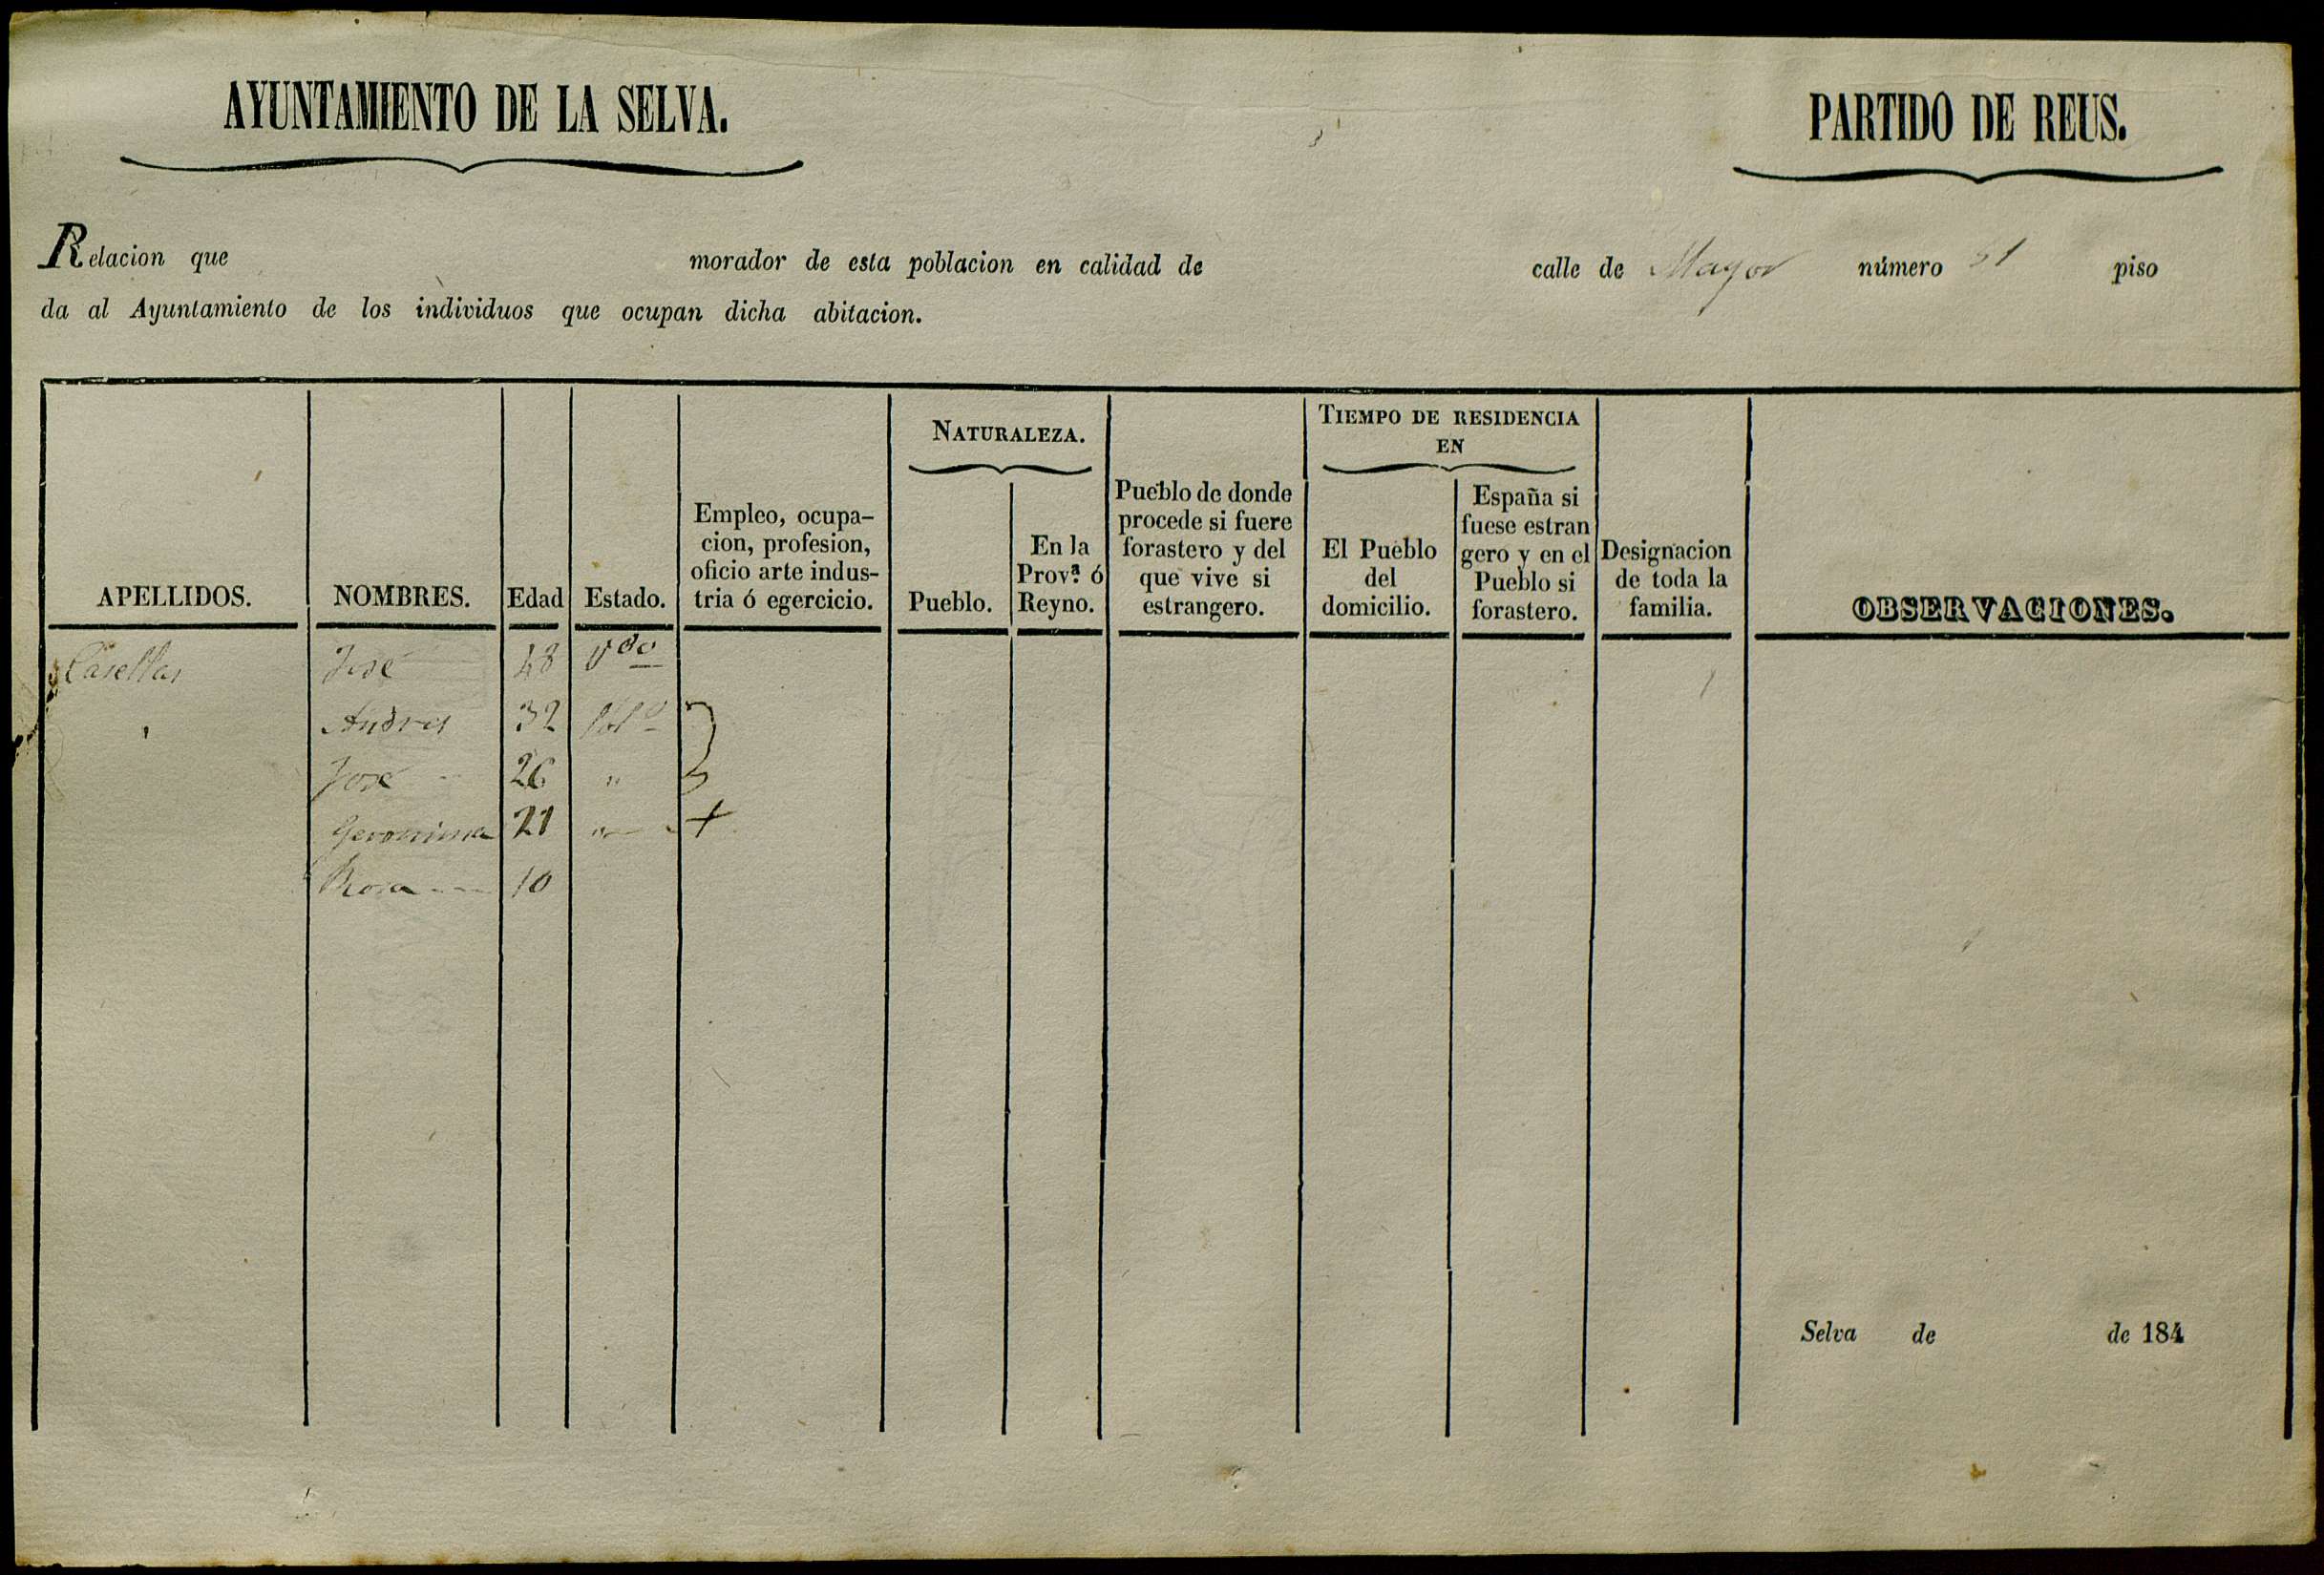 AYUNTAMIENTO DE LA SELVA.
PARTIDO DE REUS.
Relacion que morador de esta poblacion en calidad de calle de Mayor número piso
da al Ayuntamiento de los individuos que ocupan dicha abitacion.
APELLIDOS.
NOMBRES.
Edad
Estado.
Empleo, ocupa-
cion, profesion,
oficio arte indus-
tria ó egercicio.
NATURALEZA.
Pueblo.
En la
Prov.ª ó
Reyno.
Pueblo de donde
procede si fuere
forastero y del
que vive si
estrangero.
TIEMPO DE RESIDENCIA
EN
El Pueblo
del
domicilio.
España si
fuese estran
gero y en el
Pueblo si
forastero.
Designacion
de toda la
familia.
OBSERVACIONES.
Casellas José 48 Vdo
" Andres 32 Solº
José 26 "
Geronima 21 " +
Rosa 10
Selva de de 184